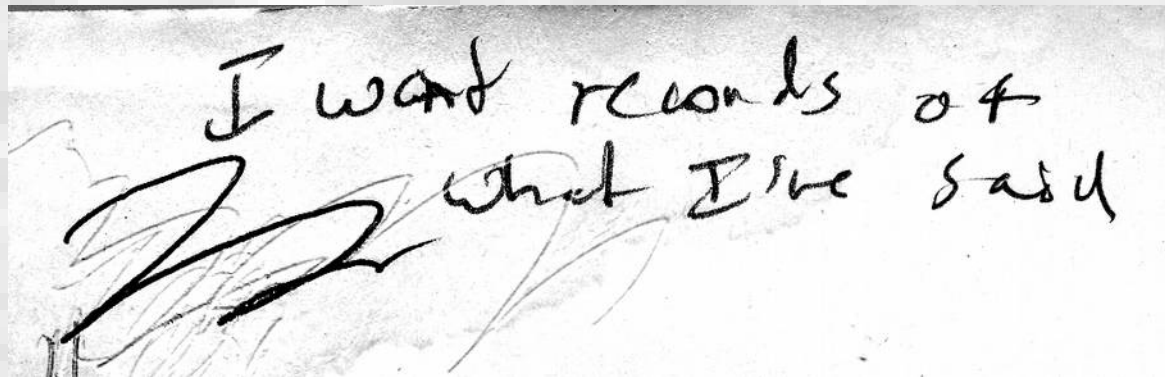 I want records of
what I've said